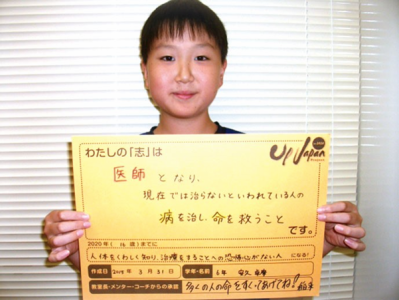 わたしの「志」は
Up Japan
医師 となり、
現在では治らないといわれている人の
病を治し、命を救うこと
です。
2020年(16歳)までに
人体をくわしく知り、治療をすることへの恐怖心がない人 になる!
作成日 2015年 3月31日 学年・名前 5年
教室長・メンター・コーチからの承認 多くの人の命をすくってあげてね!